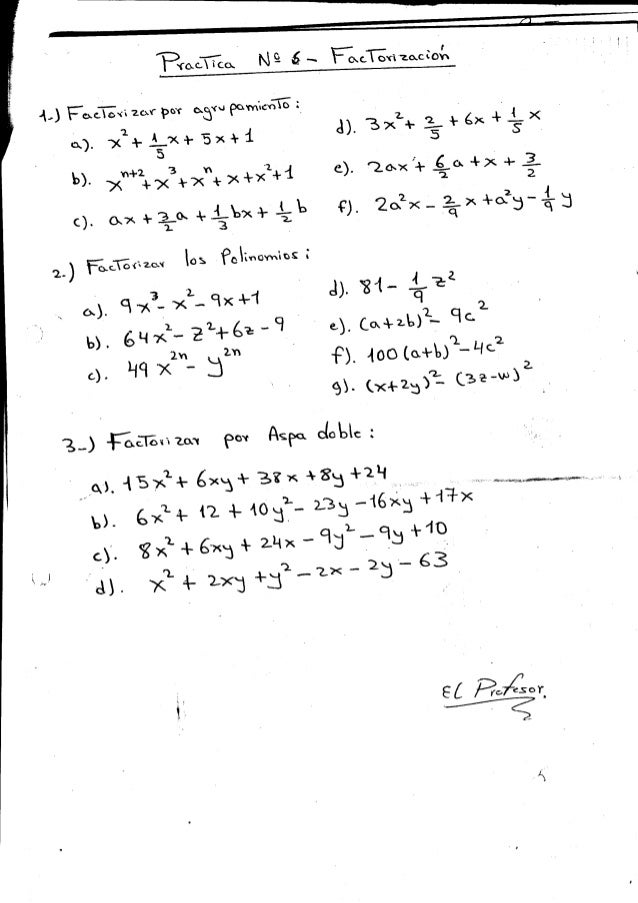 Practica Nº 6 - Factorización
1-) Factorizar por agrupamiento:
a). x² + 1/5 x + 5x + 1
b). xⁿ⁺² + x³ + xⁿ + x + x² + 1
c). ax + 3/2 a + 1/3 bx + 1/2 b
d). 3x² + 2/5 + 6x + 1/5 x
e). 2ax + 6/2 a + x + 3/2
f). 2a²x - 2/9 x + a²y - 1/9 y
2.) Factorizar los Polinomios:
a). 9x³ - x² - 9x + 1
b). 64x² - z² + 6z - 9
c). 49 x²ⁿ - y²ⁿ
d). 81 - 1/9 z²
e). (a+2b)² - 9c²
f). 100 (a+b)² - 4c²
g). (x+2y)² - (3z-w)²
3-) Factorizar por Aspa doble:
a). 15x² + 6xy + 38x + 8y + 24
b). 6x² + 12 + 10y² - 23y - 16xy + 17x
c). 8x² + 6xy + 24x - 9y² - 9y + 10
d). x² + 2xy + y² - 2x - 2y - 63
El Profesor.